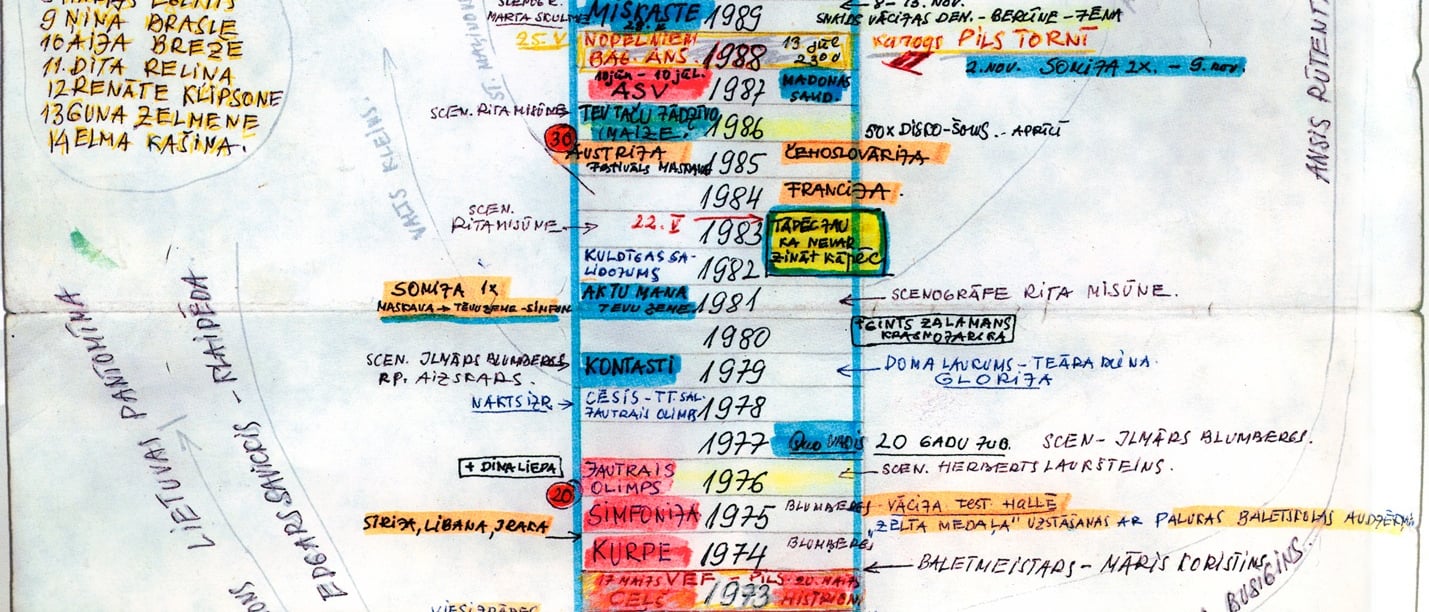 9 NINA BRASLE
10 AIJA BREZE
11. DITA RELIŅA
12 RENĀTE KLIPSONE
13 GUNA ZELMENE
14 ELMA KAŠINA.
MARTA
MISKASTE 1989
8 - 13. NOV.
VĀCIJAS DEN. - BERLĪNE -
25. V
NOPELNIEM
BAG. ANS. 1988
13 jūl
2300
Karogs PILS TORNĪ
2. NOV. SOMIJA 2X. - 9. NOV.
10 jūn - 10 jūl.
ASV 1987 MADONAS
SAVD.
SCEN. RITA MISŪNE
TEV TAČU JĀDZĪVO
(MAIZE, 1986
50X DISKO-ŠOVS. - APRĪLĪ
30
AUSTRIJA 1985 ČEHOSLOVĀKIJA
FESTIVĀLS MASKAVĀ
1984 FRANCIJA.
SCEN.
RITA MISŪNE
22. V 1983 TĀPĒC JAU
KA NEVAR
ZINĀT KĀPĒC
KULDĪGAS SA-
LĪDOJUMS 1982
SOMIJA 1X
MASKAVA + TĒVU ZEME - SIMFON
AKTU MANA
TĒVU ZEME 1981
SCENOGRĀFE RITA MISŪNE.
1980
+ GINTS ZALAMANS
KRASNOJARSKA
SCEN. ILMĀRS BLUMBERGS
RP. AIZSKARS.
KONTASTI 1979
DOMA LAUKUMS -
GLORIJA
NAKTS IZR
CĒSIS - TT. SAL.
JAUTRAIS OLIMPS 1978
1977 QUO VADIS 20 GADU JUB. SCEN - ILMĀRS BLUMBERGS.
+ DINA LIEPA
JAUTRAIS
OLIMPS 1976
SCEN. HERBERTS LAUKŠTEINS.
20
SIMFONIJA 1975
BLUMBERGS
VĀCIJA FEST HALLĒ
"ZELTA MEDAĻA" UZSTĀŠANĀS AR
SĪRIJA, LIBĀNA, IRAKA
KURPE 1974
BLUMBERGS
BALETMEISTARS - MĀRIS KORISTINS
17 MAIJS VEF - PILS. 20. MAIJS
CEĻŠ 1973 HISTRIONI
VIESIZRĀDES
VALTS KLEINS.
LIETUVAS PANTOMĪMA
EDGARS SAVICKIS - KLAIPĒDA
BUSIGINS